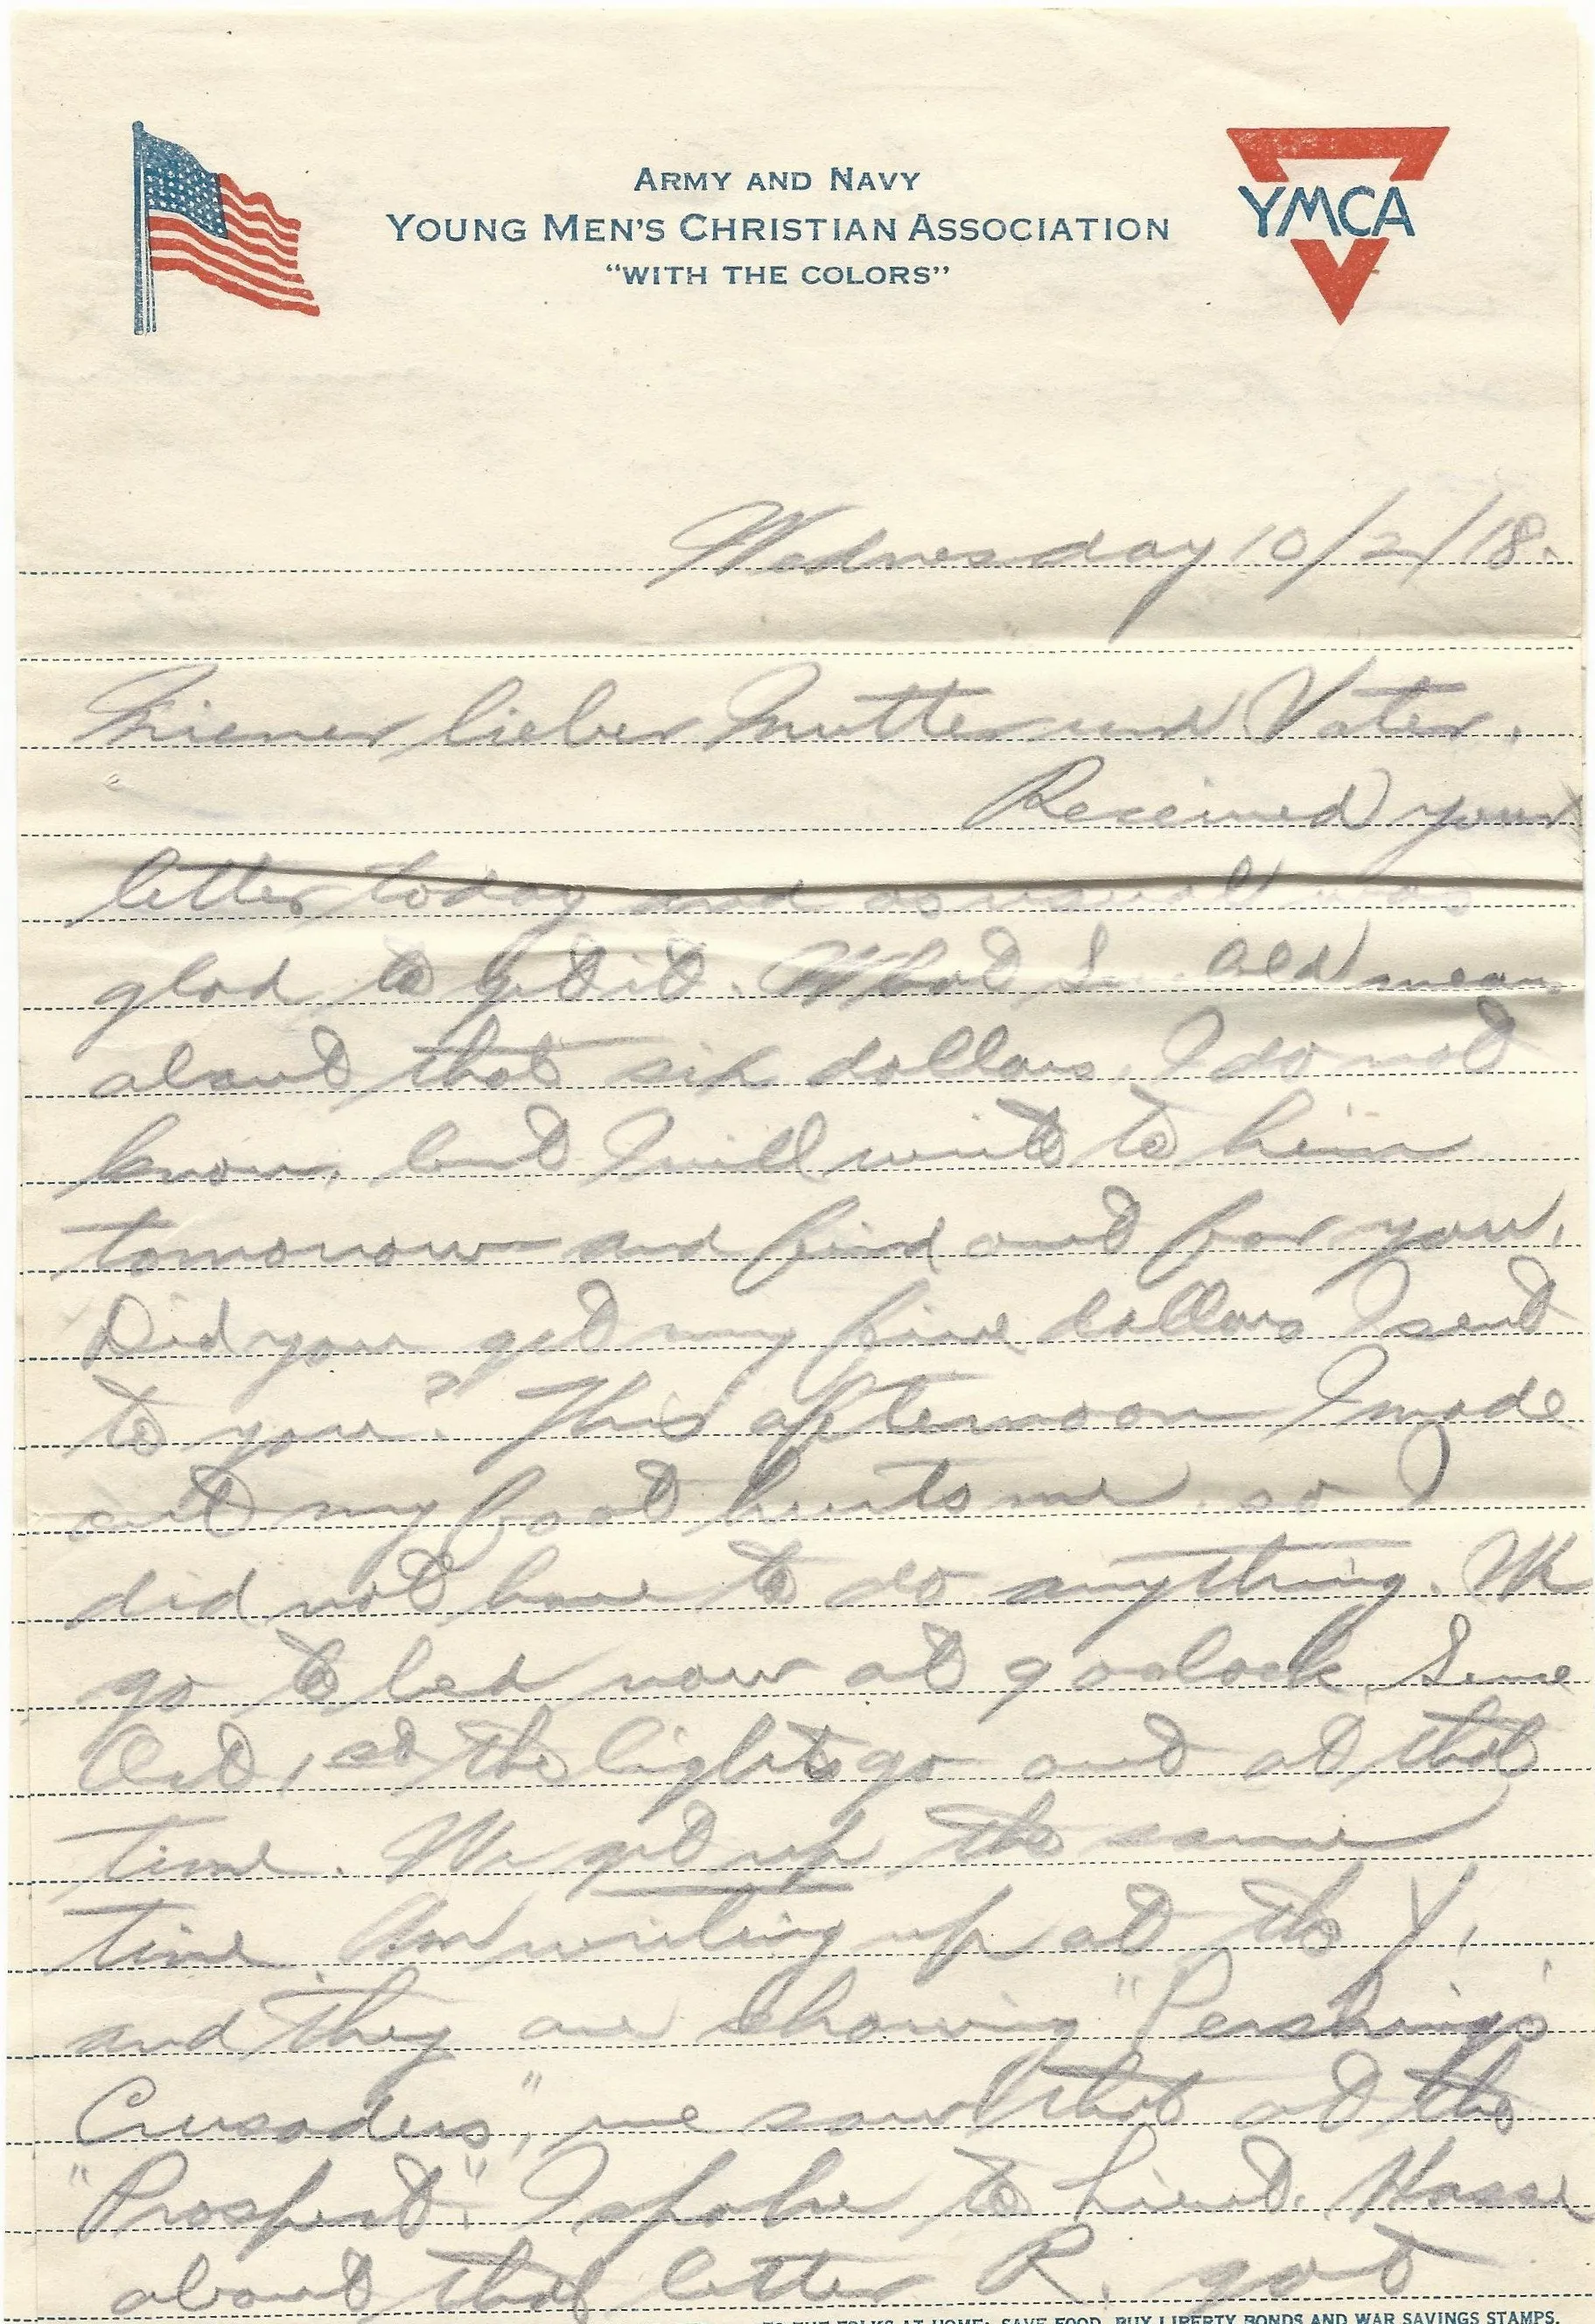 ARMY AND NAVY
YOUNG MEN'S CHRISTIAN ASSOCIATION
"WITH THE COLORS"
YMCA
Wednesday 10/2/18.
Miener lieber Mutter und Vater.
Received your
letter today and as usual was
glad to get it. What mean
about that six dollars, I do not
know, but I will write to him
tomorrow and find out for you.
Did you get my five dollars I sent
to you? This afternoon I made
out my foot hurts me, so I
did not have to do anything. We
go to bed now at 9 oclock, Since
Oct, 1st the lights go out at that
time. We get up the same
time. Am writing up at the Y,
and they are showing "Pershing's
Crusaders," we saw that at the
"Prospect". I spoke to Lieut. Hasse
about that letter R. got
TO THE FOLKS AT HOME: SAVE FOOD, BUY LIBERTY BONDS AND WAR SAVINGS STAMPS.